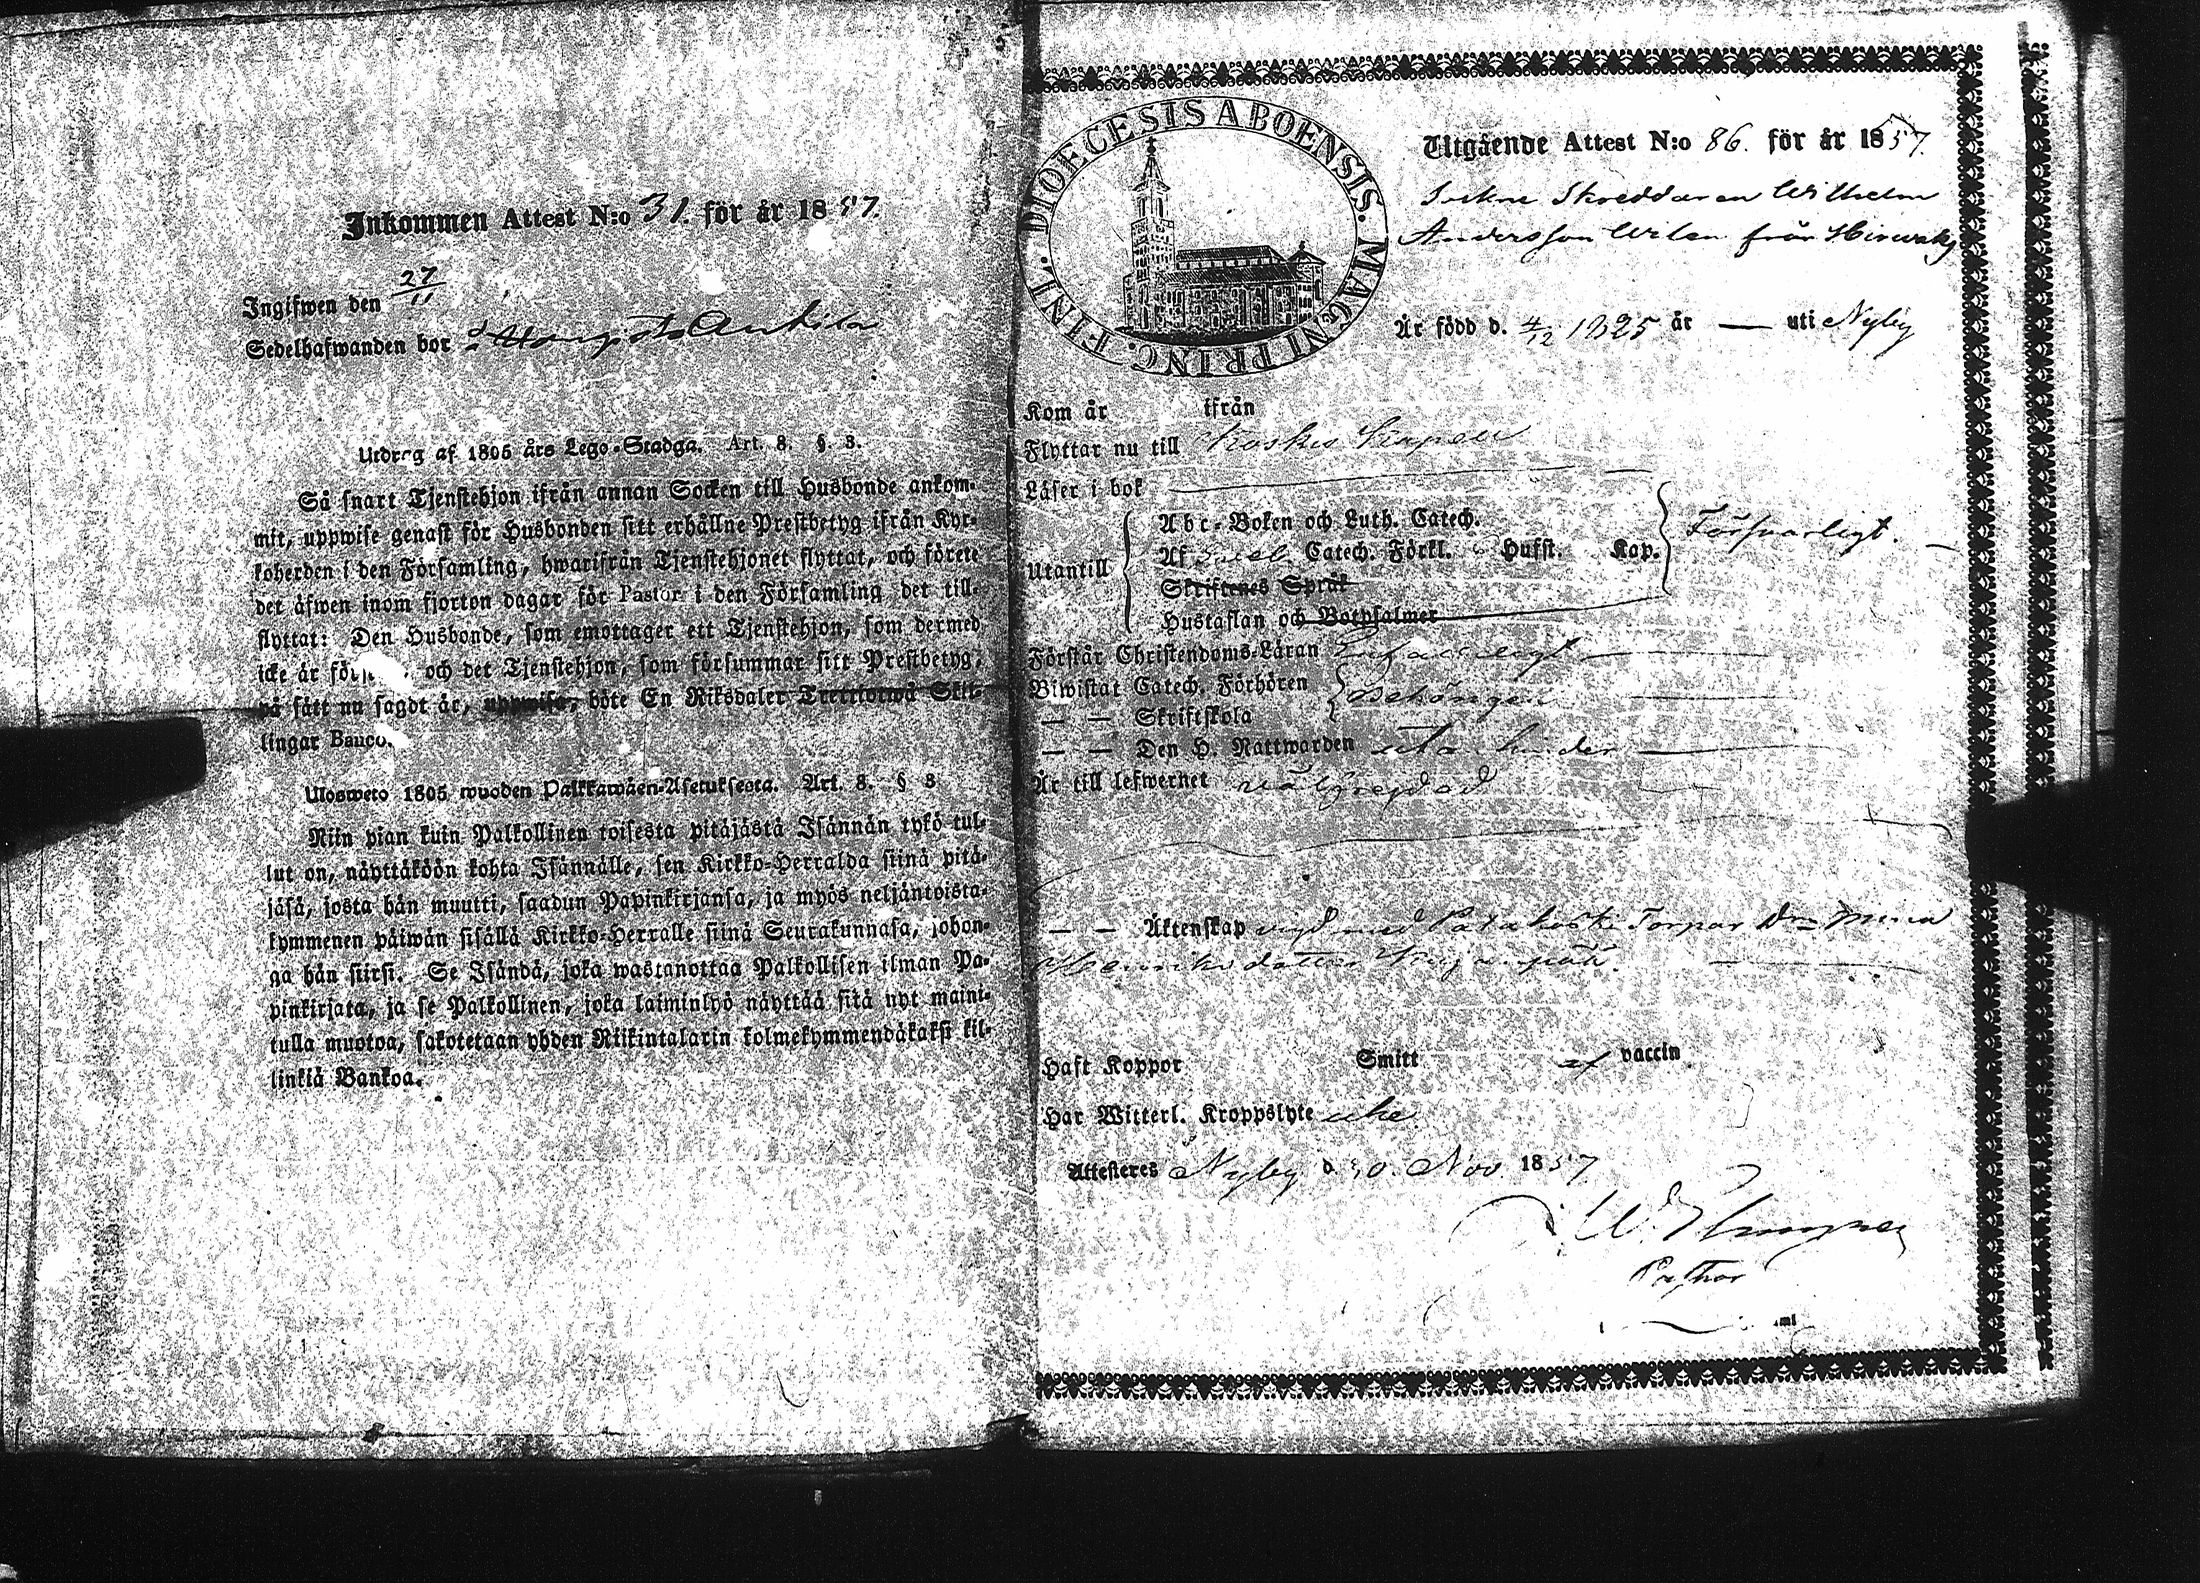 Inkommen Attest N:o 31. för år 1857.
Ingifwen den 27/11
Sedelhafwanden bor
Utdrag af 1805 års Lego-Stadga. Art. 8. §. 3.
Så snart Tjenstehjon ifrån annan Socken till Husbonde ankom-
mit, uppwise genast för Husbonden sitt erhållne Prestbetyg ifrån Kyr-
koherden i den Församling, hwarifrån Tjenstehjonet flyttat, och förete
det äfwen inom fjorton dagar för Pastor i den Församling det till-
flyttat: Den Husbonde, som emottager ett Tjenstehjon, som dermed
icke är och det Tjenstehjon, som försummar sitt Prestbetyg,
på sätt nu sagdt är, uppwisa, böte En Riksdaler Trettiotwå Skil-
lingar Banco.
Ulosweto 1805 wuoden Palkkawäen-Asetuksesta. Art. 8. § 3
Niin pian kuin Palkollinen toisesta pitäjästä Isännän tykö tul-
lut on, näyttäköön kohta Isännälle, sen Kirkko-Herralda siinä pitä-
jäsä, josta hän muutti, saadun Papinkirjansa, ja myös neljäntoista-
kymmenen päiwän sisällä Kirkko-Herralle siinä Seurakunnasa, johon-
ga hän siirsi. Se Isändä, joka wastanottaa Palkollisen ilman Pa-
pinkirjata, ja se Palkollinen, joka laiminlyö näyttää sitä nyt maini-
tulla muotoa, sakotetaan yhden Riikintalarin kolmekymmendäkaksi kil-
linkiä Bankoa.
DIOECESIS ABOENSIS. MAGNI PRINC. FINL.
Utgående Attest N:o 86. för år 1857.
Sokne Skreddaren Wilhelm
Andersson Wilen från
Är född d. 4/12 1825 år — uti Nyby
Kom år ifrån
Flyttar nu till Koskis Kapell
Läser i bok
Utantill
Abc-Boken och Luth. Catech.
Af Sveb. Catech. Förkl. Husst. Kap.
Försvarligt.
Skriftenes Språk
Hustaflan och Botpsalmer
Förstår Christendoms-Läran Enfaldigt
Biwistat Catech. Förhören
— — Skriftskola
behörigen
— — Den H. Nattwarden utan hinder
Är till lefwernet välfrejdad
— — Äktenskap vigd med Torpar Dn
Henriksdotter
Haft Koppor Smitt af vaccin
Har Witterl. Kroppslyte icke
Attesteres Nyby d. Nov. 1857
Pastor